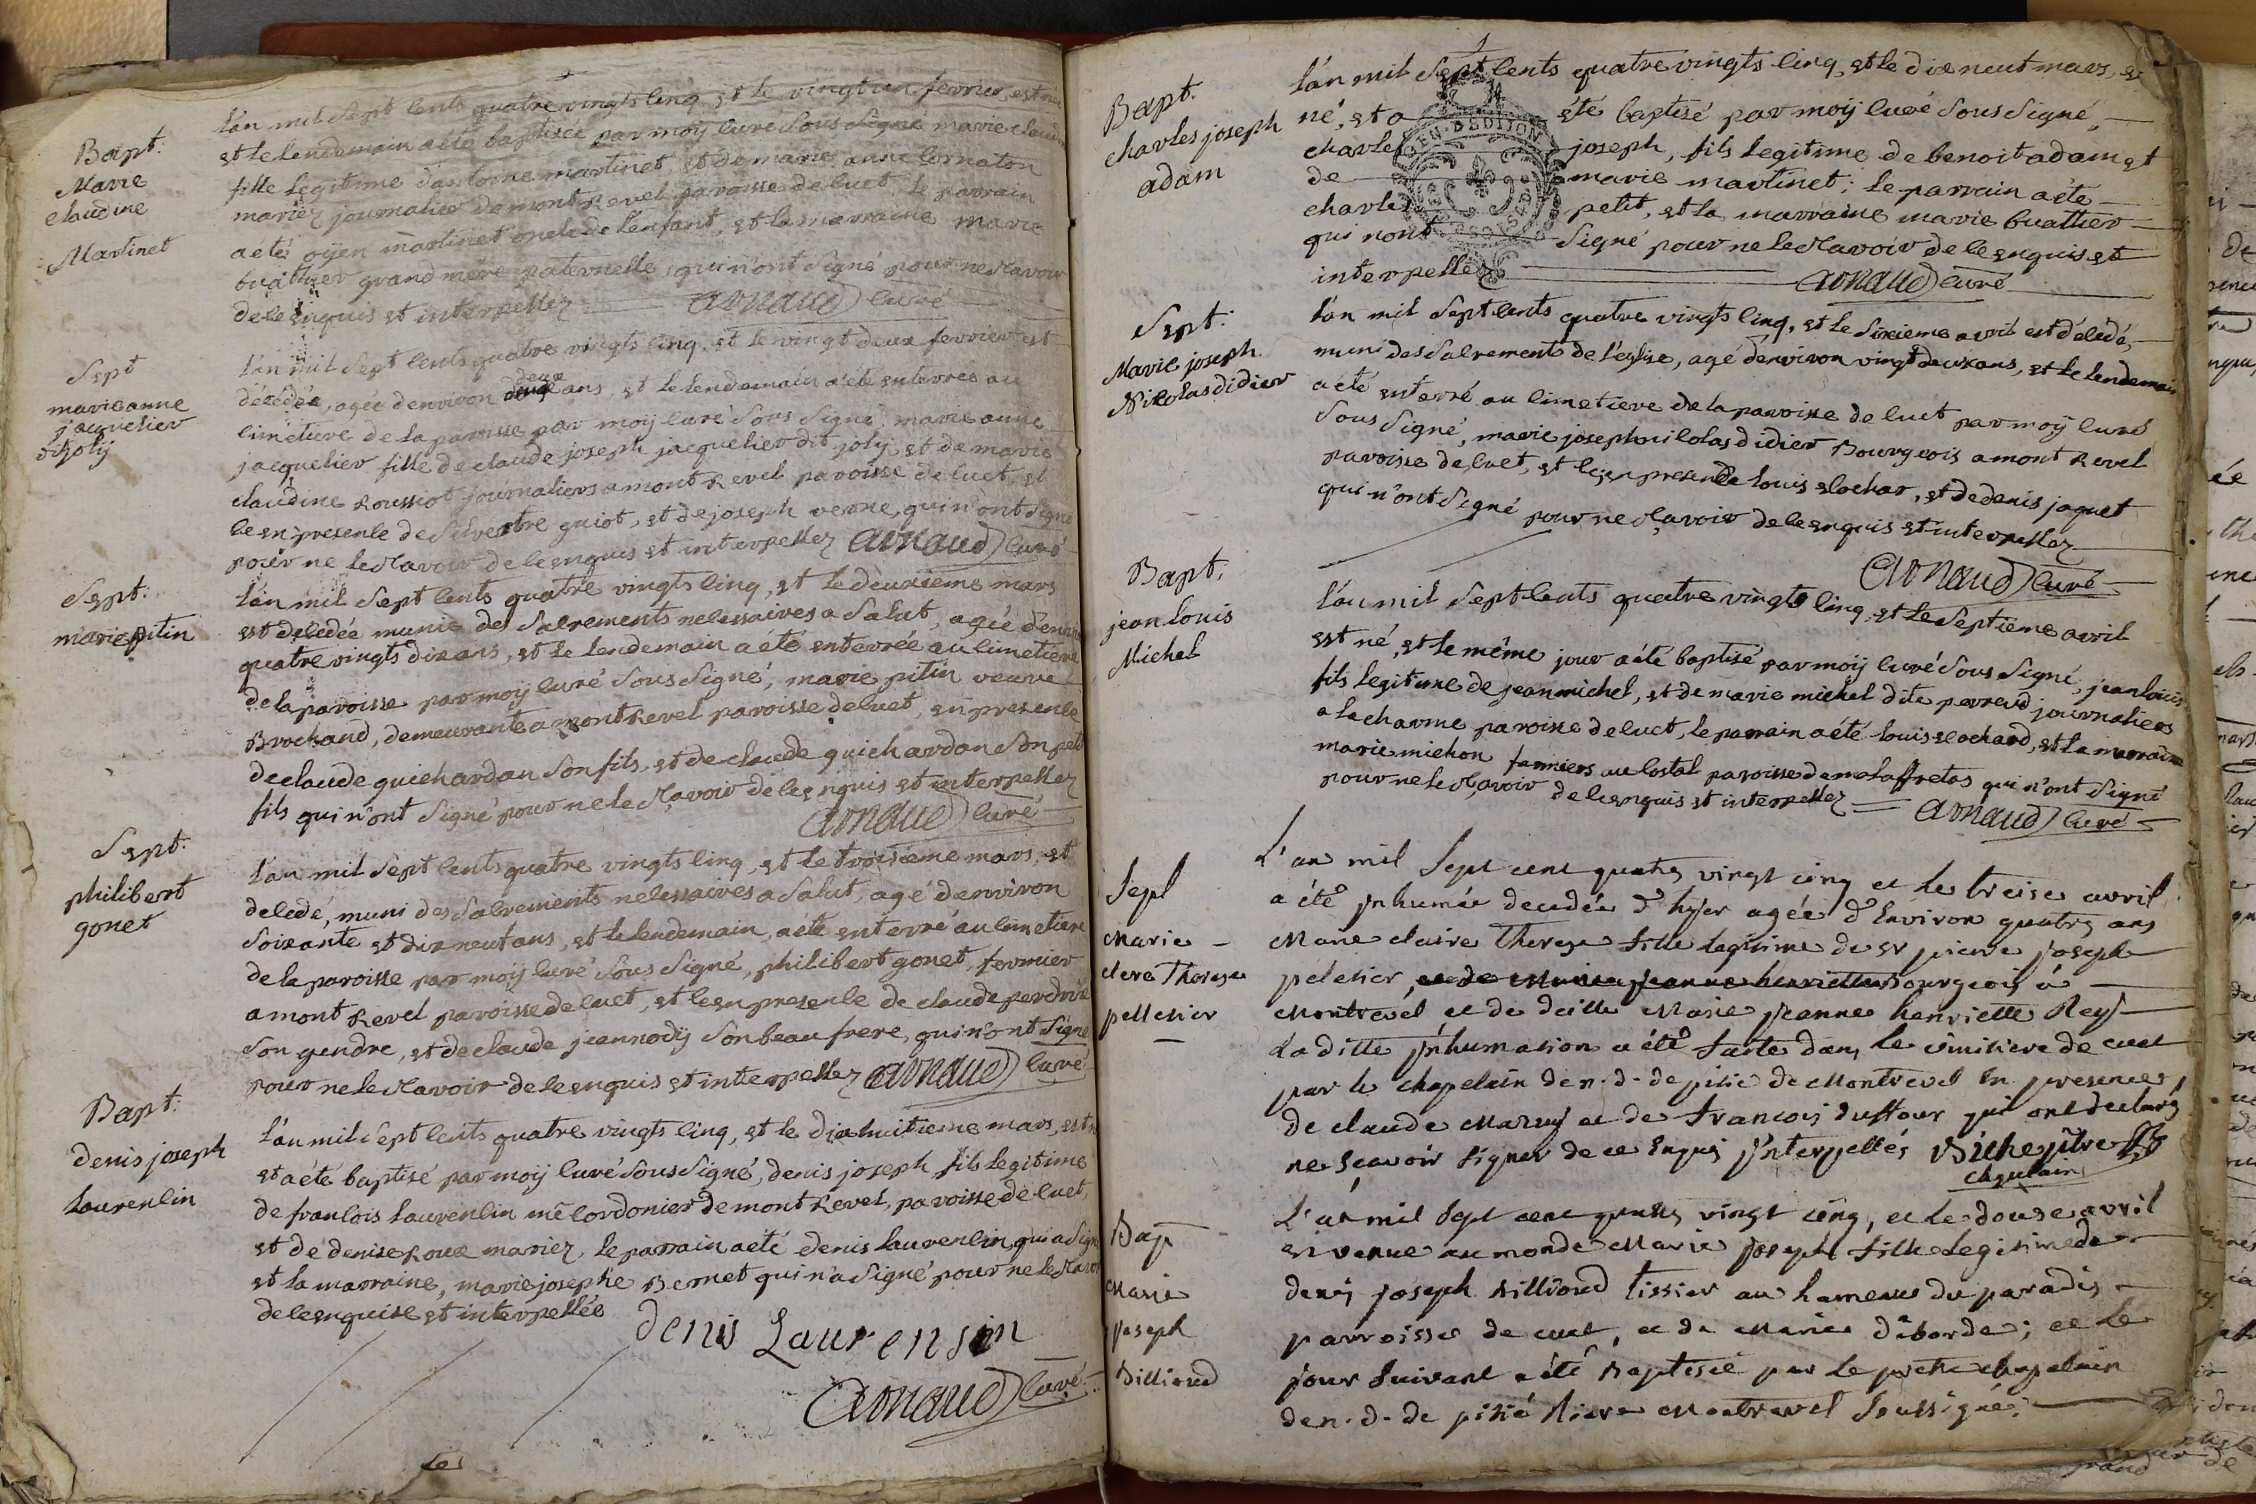 Bapt:
Marie
claudine
Martinet
L'an mil sept cents quatre vingts cinq, et le vingt un fevrier, est née
et le lendemain a été baptisée par moÿ curé sous signé marie claudine
fille legitime d'antoine martinet et de marie anne cornaton
mariez journalier de mont Revel paroisse de cuet, le parrain
a eté oÿen martinet oncle de l'enfant, et la marraine marie
buathier grand mere paternelle, qui n'ont signé pour ne sçavoir
de ce enquis et interpellez arnaud curé
Sept
marie anne
jacquelier
dit jolÿ
L'an mil sept cents quatre vingts cinq, et le vingt deux fevrier est
décédée, agée d'environ deux ans, et le lendemain a été enterrée au
cimetiere de la paroisse par moÿ curé sous signé, marie anne
jacquelier fille de claude joseph jacquelier dit jolÿ, et de marie
claudine Roussot journaliers a mont Revel paroisse de cuet, et
ce en presence de Silvestre guiot, et de joseph verne, qui n'ont signé
pour ne le sçavoir de ce enquis et interpellez arnaud curé
Sept:
marie pitin
L'an mil sept cents quatre vingts cinq, et le deuxieme mars
est decedée munie des sacrements necessaires a salut, agée d'environ
quatre vingts dix ans, et le lendemain a été enterrée au cimetiere
de la paroisse par moÿ curé sous signé, marie pitin veuve
Brochand, demeurante a mont Revel paroisse de cuet, en presence
de claude guichardan son fils, et de claude guichardan son petit
fils qui n'ont signé pour ne le sçavoir de ce enquis et interpellez
arnaud curé
Sept:
philibert
gonet
L'an mil sept cents quatre vingts cinq, et le troisieme mars, est
decedé, muni des sacrements necessaires a salut, agé d'environ
soixante et dix neuf ans, et le lendemain, a été enterré au cimetiere
de la paroisse par moÿ curé sous signé, philibert gonet, fermier
a mont Revel paroisse de cuet, et ce en presence de claude perdrix
son gendre, et de claude jeannodÿ son beau frere, qui n'ont signé
pour ne le sçavoir de ce enquis et interpellez arnaud curé
Bapt:
denis joseph
Laurencin
L'an mil sept cents quatre vingts cinq, et le dix huitieme mars, est né
et a été baptisé par moÿ curé sous signé, denis joseph fils legitime
de francois Laurencin me cordonier de mont Revel, paroisse de cuet,
et de denise Roux mariez, le parrain a eté denis laurencin, qui a signé
et la marraine, marie josephe Bernet qui n'a signé pour ne le sçavoir
de ce enquise et interpellée
denis Laurensin
arnaud curé
Les
Bapt.
charles joseph
adam
L'an mil sept cents quatre vingts cinq, et le dix neuf mars, est
né, et a été baptisé par moÿ curé sous signé,
charles joseph, fils legitime de benoit adam et
de marie martinet; le parrain a éte
charles petit, et la marraine marie buathier
qui n'ont signé pour ne le sçavoir de ce enquis et
interpellez arnaud curé
Sept:
Marie joseph
Nicolas didier
L'an mil sept cents quatre vingts cinq, et le sixieme avril est décédé,
muni des sacrements de l'eglise, agé d'environ vingt deux ans, et le lendemain
a été enterré au cimetiere de la paroisse de cuet par moÿ curé
sous signé, marie joseph nicolas didier Bourgeois a mont Revel
paroisse de cuet, et ce en presence de louis elochar, et de denis jaquet
qui n'ont signé pour ne sçavoir de ce enquis et interpellez
arnaud curé
Bapt.
jean louis
Michel
L'an mil sept cents quatre vingts cinq, et le septieme avril
est né, et le même jour a été baptisé par moÿ curé sous signé, jean louis
fils legitime de jean michel, et de marie michel dite perraud journaliers
a la charme paroisse de cuet, le parrain a été louis elochard, et la marraine
marie michon fermiers au costal paroisse de malaffretas qui n'ont signé
pour ne le sçavoir de ce enquis et interpellez arnaud curé
Sept
Marie
clere Therese
pelletier
L'an mil sept cent quatre vingt cinq et le treise avril
a été inhumée decedée d'hyer agée d'environ quatre ans
Marie claire Therese fille legitime de sr pierre joseph
peletier, et de Marie jeanne henriette Bourgeois à
Montrevel et de deille Marie jeanne henriette Rey
La ditte inhumation a été faite dans le cimitiere de cuet
par le chapelain de n. d. de pitié de Montrevel en presence
de claude Mary et de francois duffour qui ont declarés
ne sçavoir signer de ce enquis interpellés Biche ptre
chapelain
Bap
Marie
joseph
Billioud
L'an mil sept cent quatre vingt cinq, et le douse avril
est venue au monde Marie joseph fille legitime de
denis joseph billioud tissier au hameau du paradis
parroisse de cuet, et de Marie déborde; et le
jour suivant a été baptisée par le pretre chapelain
de n. d. de pitié riere Montrevel soussigné.